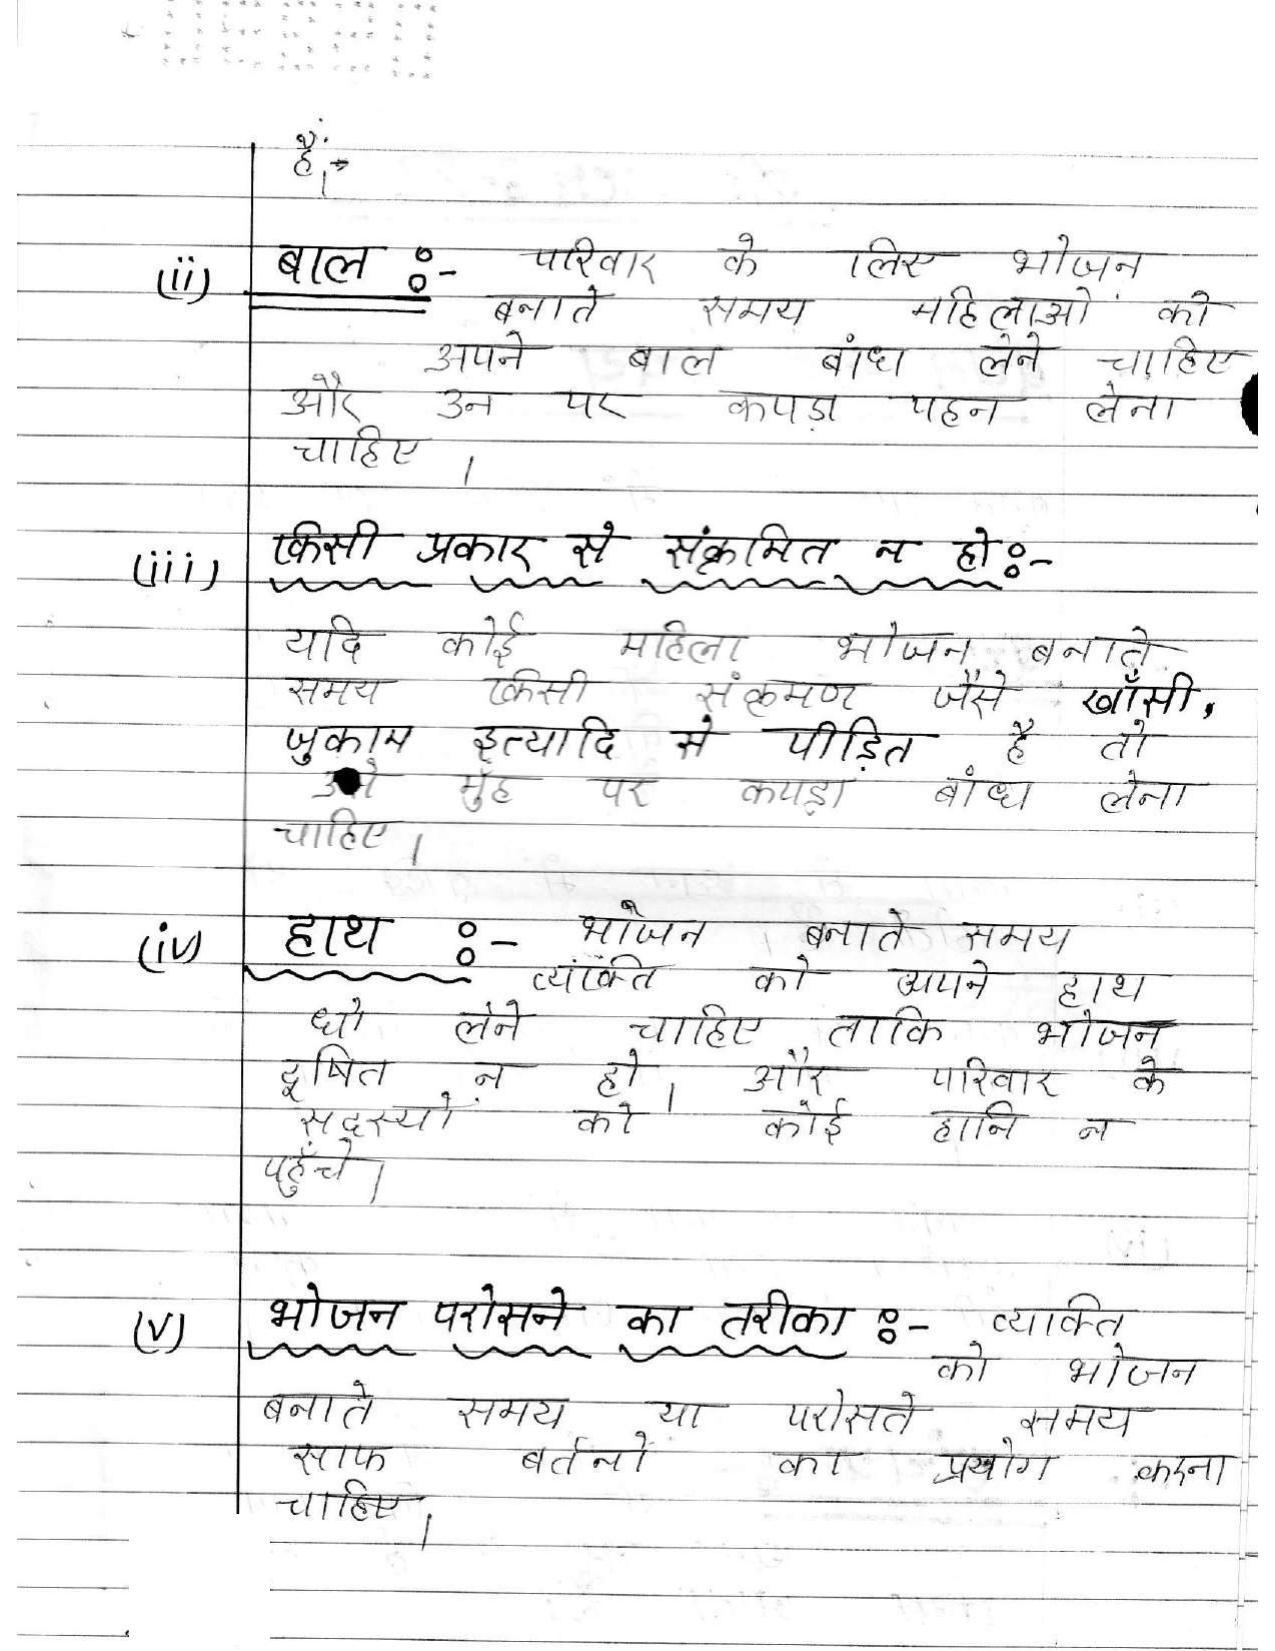 हैं।-
(ii) बाल :- परिवार के लिए भोजन
बनाते समय महिलाओं को
अपने बाल बांध लेने चाहिए
और उन पर कपड़ा पहन लेना
चाहिए।
(iii) किसी प्रकार से संक्रमित न हो:-
यदि कोई महिला भोजन बनाते
समय किसी संक्रमण जैसे खाँसी,
जुकाम इत्यादि से पीड़ित है तो
मुँह पर कपड़ा बांध लेना
चाहिए।
(iv) हाथ :- भोजन बनाते समय
व्यक्ति को अपने हाथ
धो लेने चाहिए ताकि भोजन
दूषित न हो। और परिवार के
सदस्यों को कोई हानि न
पहुँचे।
(v) भोजन परोसने का तरीका :- व्यक्ति
को भोजन
बनाते समय या परोसते समय
साफ बर्तनों का प्रयोग करना
चाहिए।